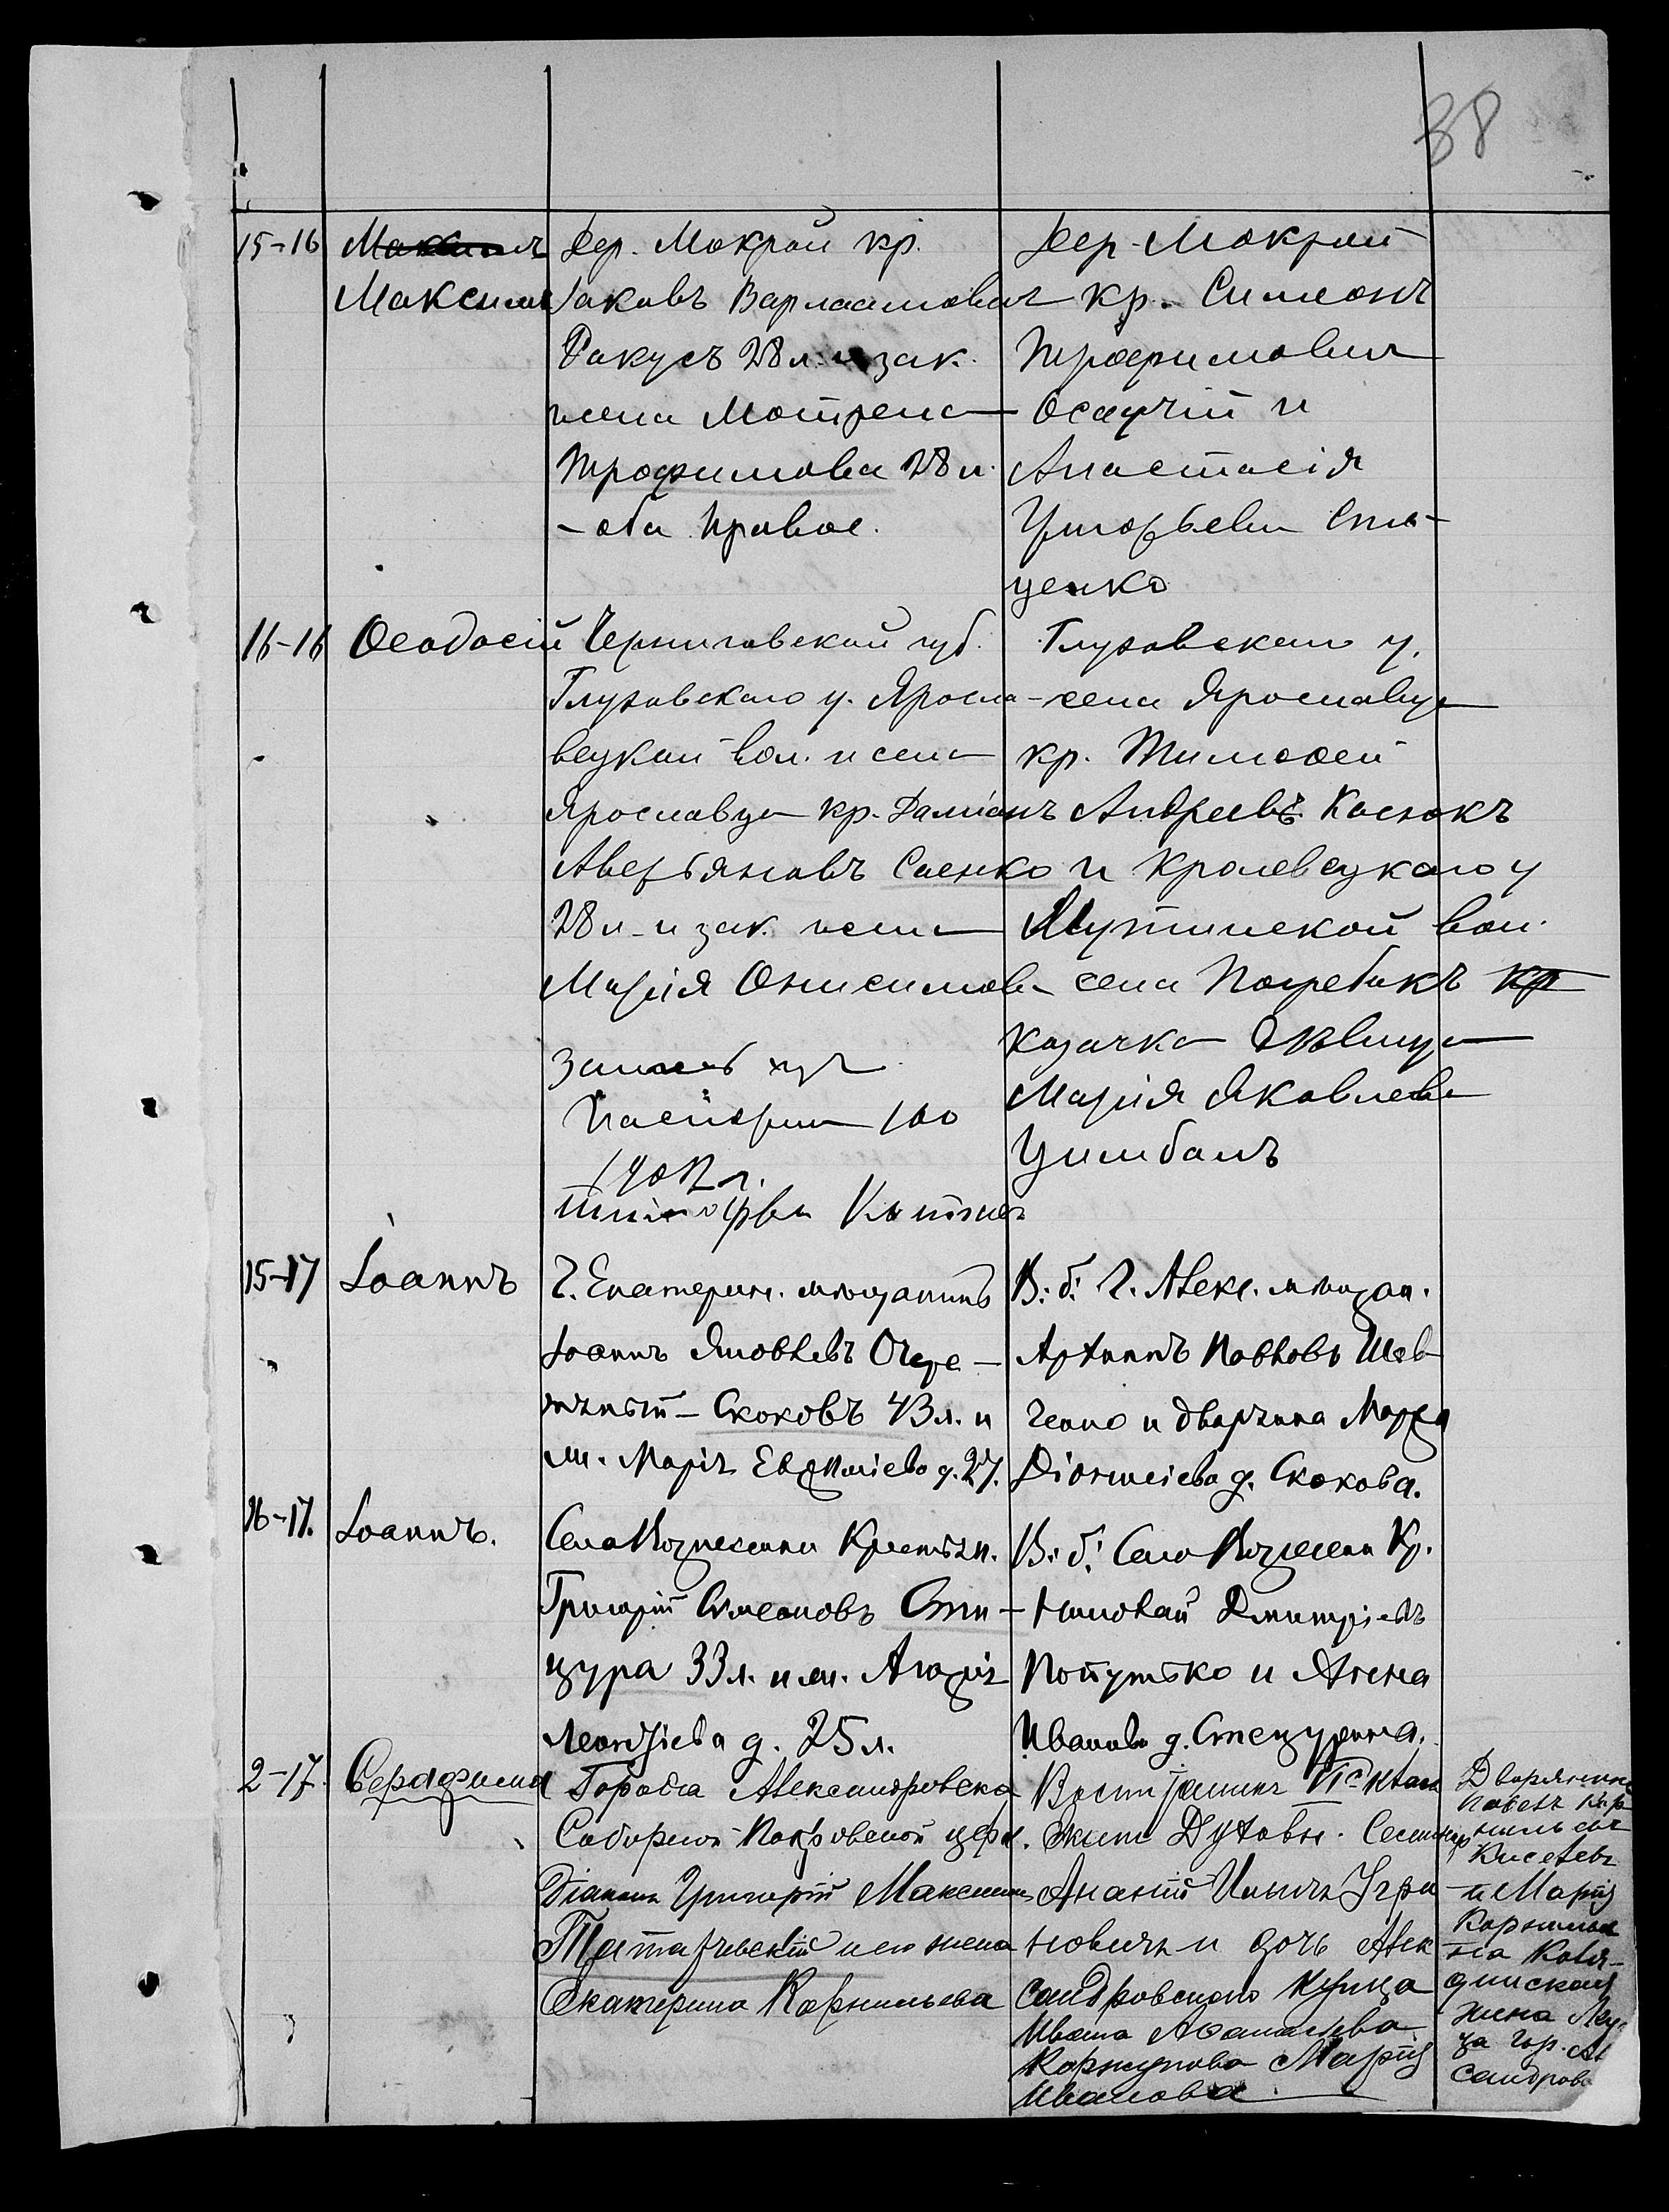 38
15-16
Максимъ
Дер. Мокрой кр.
Іаковъ Варлаамовъ
Ракусъ 28 л. и зак.
жена Мотрена
Трофимова 28 л.
- оба правос.
Дер. Мокрой
кр. Симеонъ
Трофимовичъ
Осадчій и
Анастасія
Григорьева Сте-
ценко
16-16
Ѳеодосій
Черниговской губ.
Глуховскаго у. Яросла-
вецкой вол. и села
Ярославца кр. Даміанъ
Аверьяновъ Саенко
28 л. и зак. жена
Марія Онисимова
Запись изъ
паспорта 100
Глуховскаго у.
села Ярославца
кр. Тимоѳей
Андреевъ Костюкъ
и Кролевецкаго у
Мутинской вол.
села Погребокъ кр
казачка дѣвица
Марія Яковлева
Цимбалъ
15-17
Іоаннъ
Г. Екатерин. мѣщанинъ
Іоаннъ Яковлевъ Чере-
Скоковъ 43 л. и
ж. Марія Евѳиміева д. 27.
В. б. Г. Алекс. мѣщан.
Архипъ Павловъ Шев-
ченко и дворянка Марѳа
Діонисіева д. Скокова.
16-17.
Іоаннъ.
Села Вознесенки Крестьян.
Григорій Симеоновъ Сте-
цура 33 л. и ж. Агафія
Леонтіева д. 25 л.
В. б. Села Вознесен Кр.
Николай Дмитріевъ
Попутько и Анна
Иванова д. Стецурина.
2-17.
Серафима
Города Александровска
Соборной Покровской церк.
Діаконъ Григорій Максимов
Татарчевскій и его жена
Екатерина Корнильева
Воспитанникъ VI-с класса
Екат. Духовн. Семинар
Ананій Ильичъ Угри
новичъ и дочь Алек
сандровскаго купца
Ивана Аѳанасьева
Коржунова Марія
Иванова
Дворянинъ
Павелъ Кор
нильевъ
Киселевъ
и Марія
Корнильев
на Коля-
динская
жена куп
ца гор. Ал
сандров